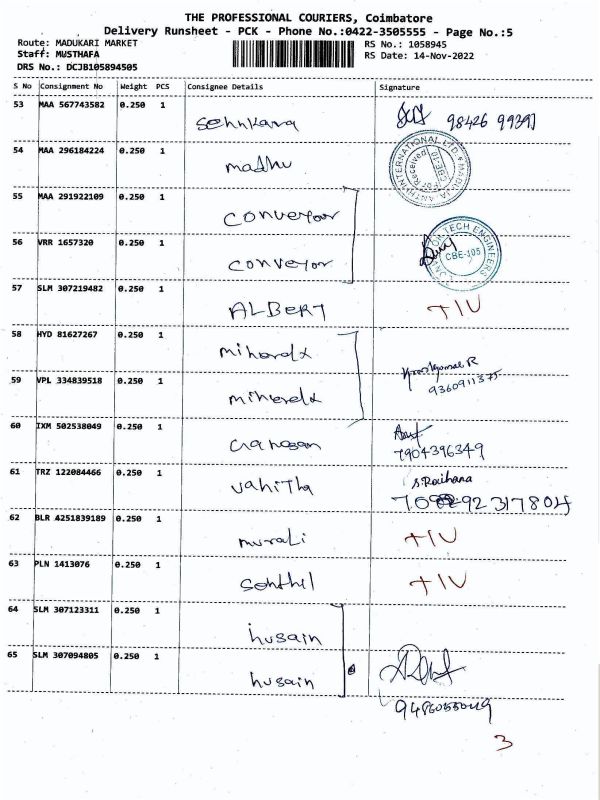 THE PROFESSIONAL COURIERS, Coimbatore
Delivery Runsheet - PCK - Phone No.:0422-3505555 - Page No.:5
Route: MADUKARI MARKET RS No.: 1058945
Staff: MUSTHAFA RS Date: 14-Nov-2022
DRS No.: DCJB105894505
S No Consignment No Weight PCS Consignee Details Signature
53 MAA 567743582 0.250 1
54 MAA 296184224 0.250 1 madhu
55 MAA 291922109 0.250 1 conveyor
56 VRR 1657320 0.250 1 conveyor CBE-105
57 SLM 307219482 0.250 1 ALBERT
58 HYD 81627267 0.250 1
59 VPL 334839518 0.250 1
9360911375
60 IXM 502538049 0.250 1
7904396349
61 TRZ 122084466 0.250 1 vahitha S.Raihana
62 BLR 4251839189 0.250 1 murali
63 PLN 1413076 0.250 1 senthil
64 SLM 307123311 0.250 1 husain
65 SLM 307094805 0.250 1 husain
3